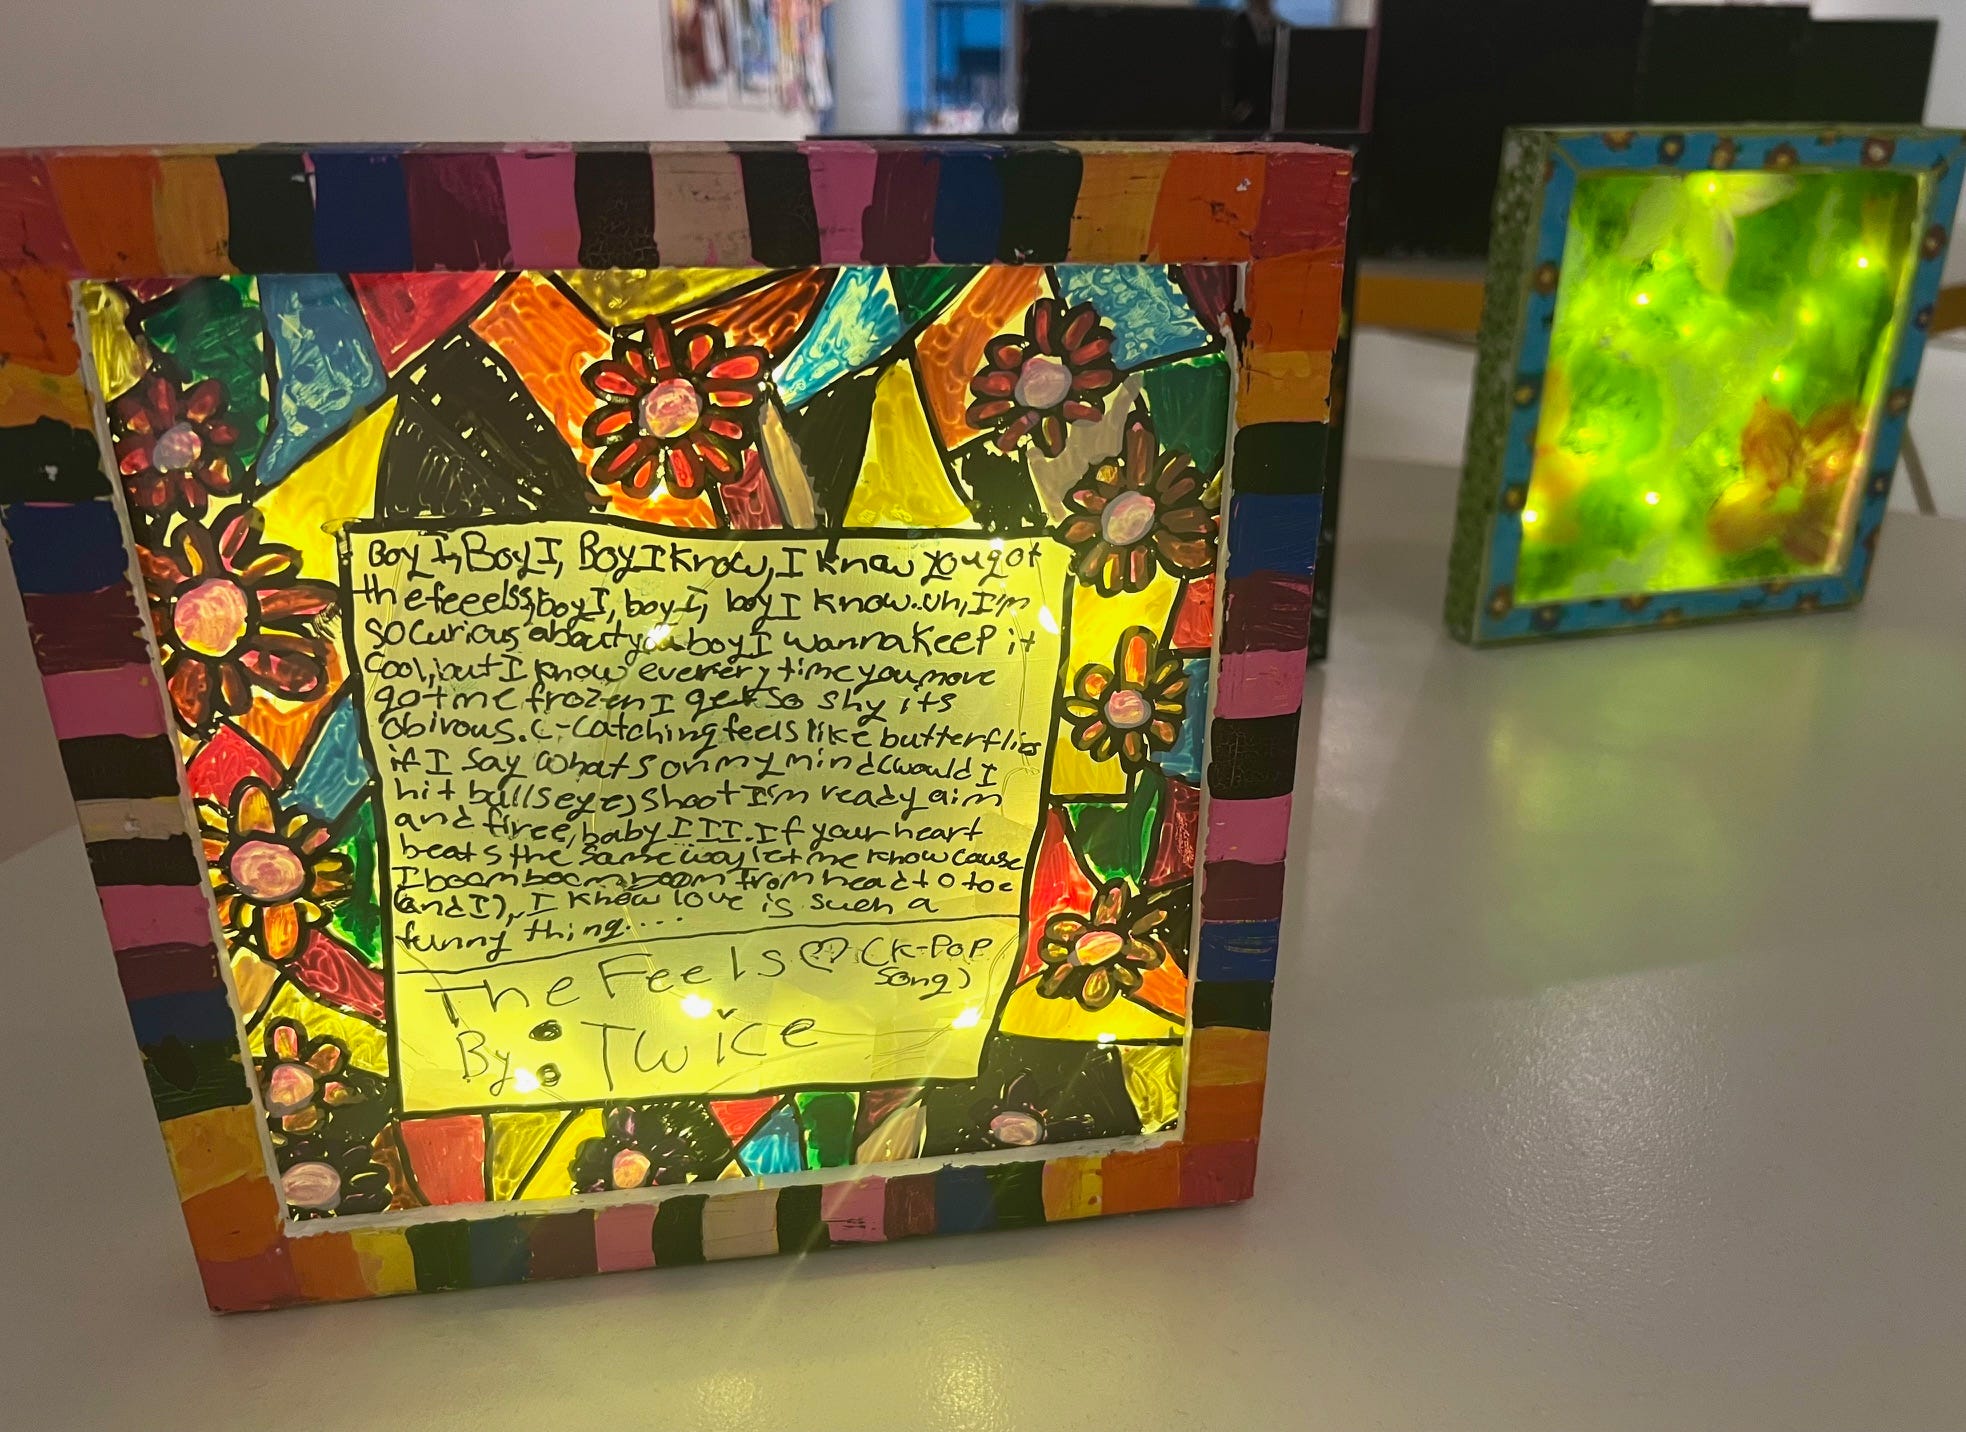 Boy I, Boy I, Boy I know, I know you got
the feeelss, boy I, boy I, boy I know. uh, I'm
so curious about you boy I wanna keep it
cool, but I know everery time you move
got me frozen I get so shy its
obirous. C-catching feels like butterflies
if I say whats on my mind (would I
hit bullseye) shoot I'm ready aim
and firee, baby I I I. If your heart
beats the same way let me know cause
I boom boom boom from head to toe
(and I), I know love is such a
funny thing....
The Feels ♡ (K-POP
song)
By: Twice